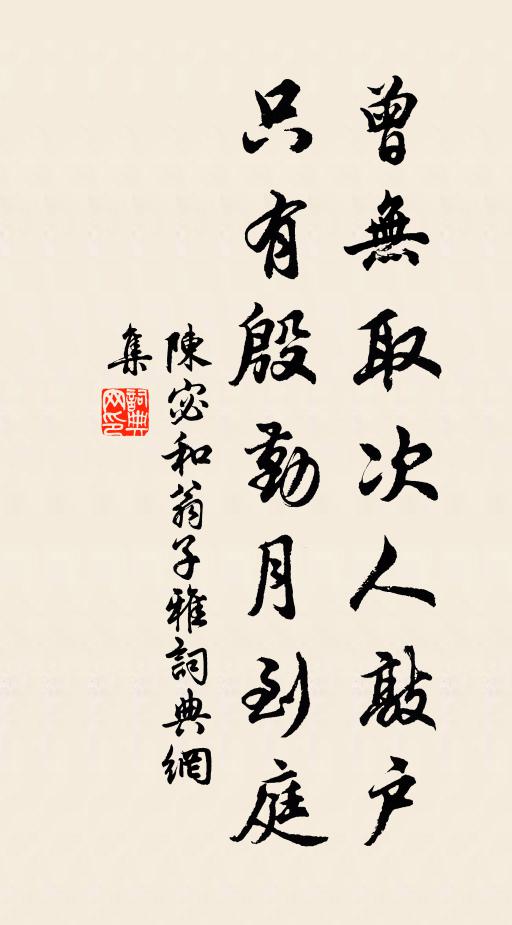 曾無取次人敲户
只有殷勤月到庭
陳宓和翁子雅詞典網
集
詞典
网印